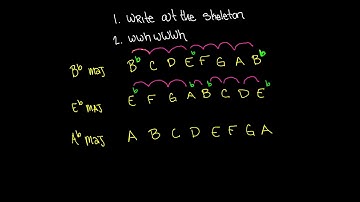 1. Write out the skeleton
2. WWhWWWh
B♭ maj B♭ C D E♭ F G A B♭
E♭ maj E♭ F G A♭ B♭ C D E♭
A♭ maj A B C D E F G A